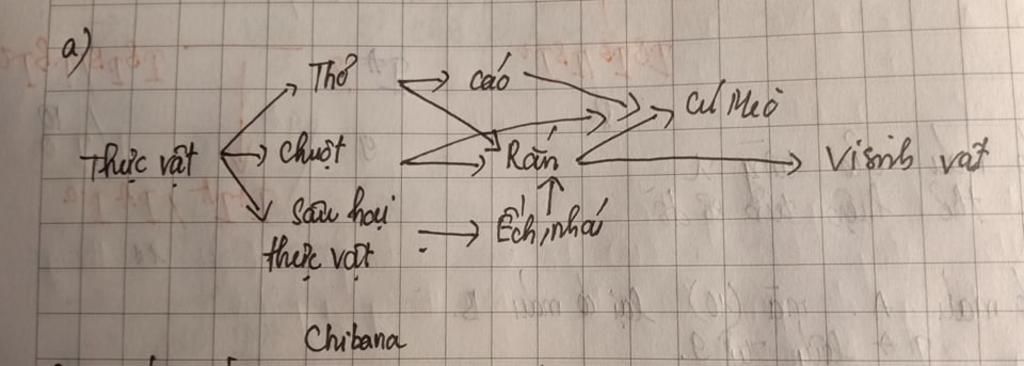 a)
Thỏ cáo cú Mèo
Thực vật chuột Rắn Vi sinh vật
Sâu hại Ếch, nhái
thực vật
Chibana